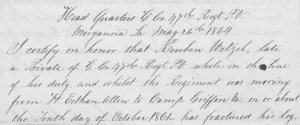 Head Quarters G. Co 47th Regt P.V.
Morganzia La May 26th 1864
I certify on honor that Reuben Wetzel, late
a Private of G. Co 47th Regt P.V. while in the line
of his duty, and whilst the Regiment was moving
from Ft Ethan Allen to Camp Griffin Va on or about
the Tenth day of October 1861 has fractured his leg